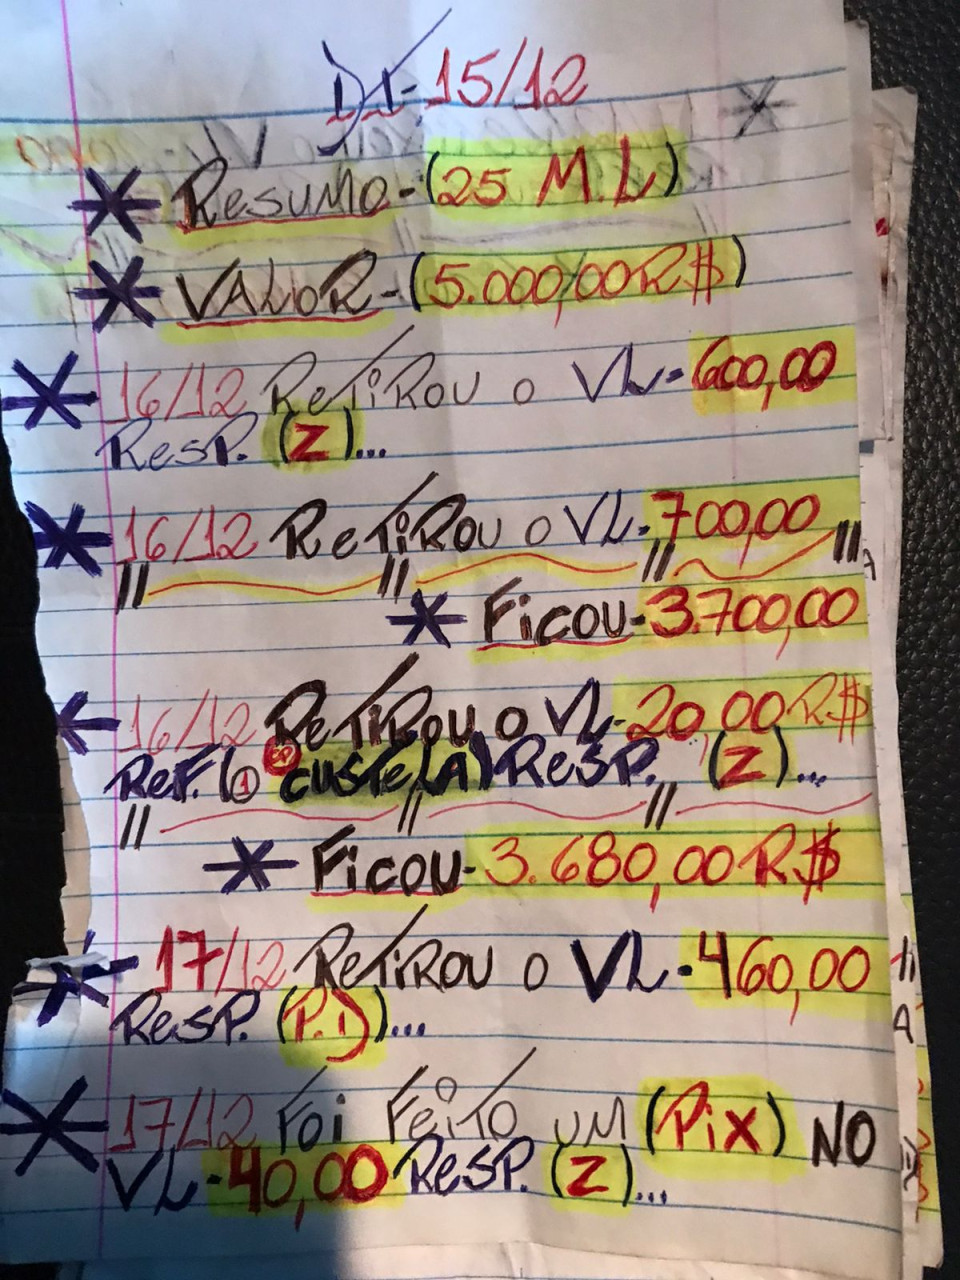 DT-15/12
* Resumo-(25 M.L)
* VALOR-(5.000,00R$)
* 16/12 Retirou o VL-600,00
Resp. (Z)...
* 16/12 Retirou o VL-700,00
* Ficou-3.700,00
* 16/12 Retirou o VL-20,00R$
Ref.(o custe(A) Resp. (Z)...
* Ficou-3.680,00R$
* 17/12 Retirou o VL-460,00
Resp. (P.I)...
* 17/12 Foi Feito um (Pix) NO
VL-40,00 Resp. (Z)...